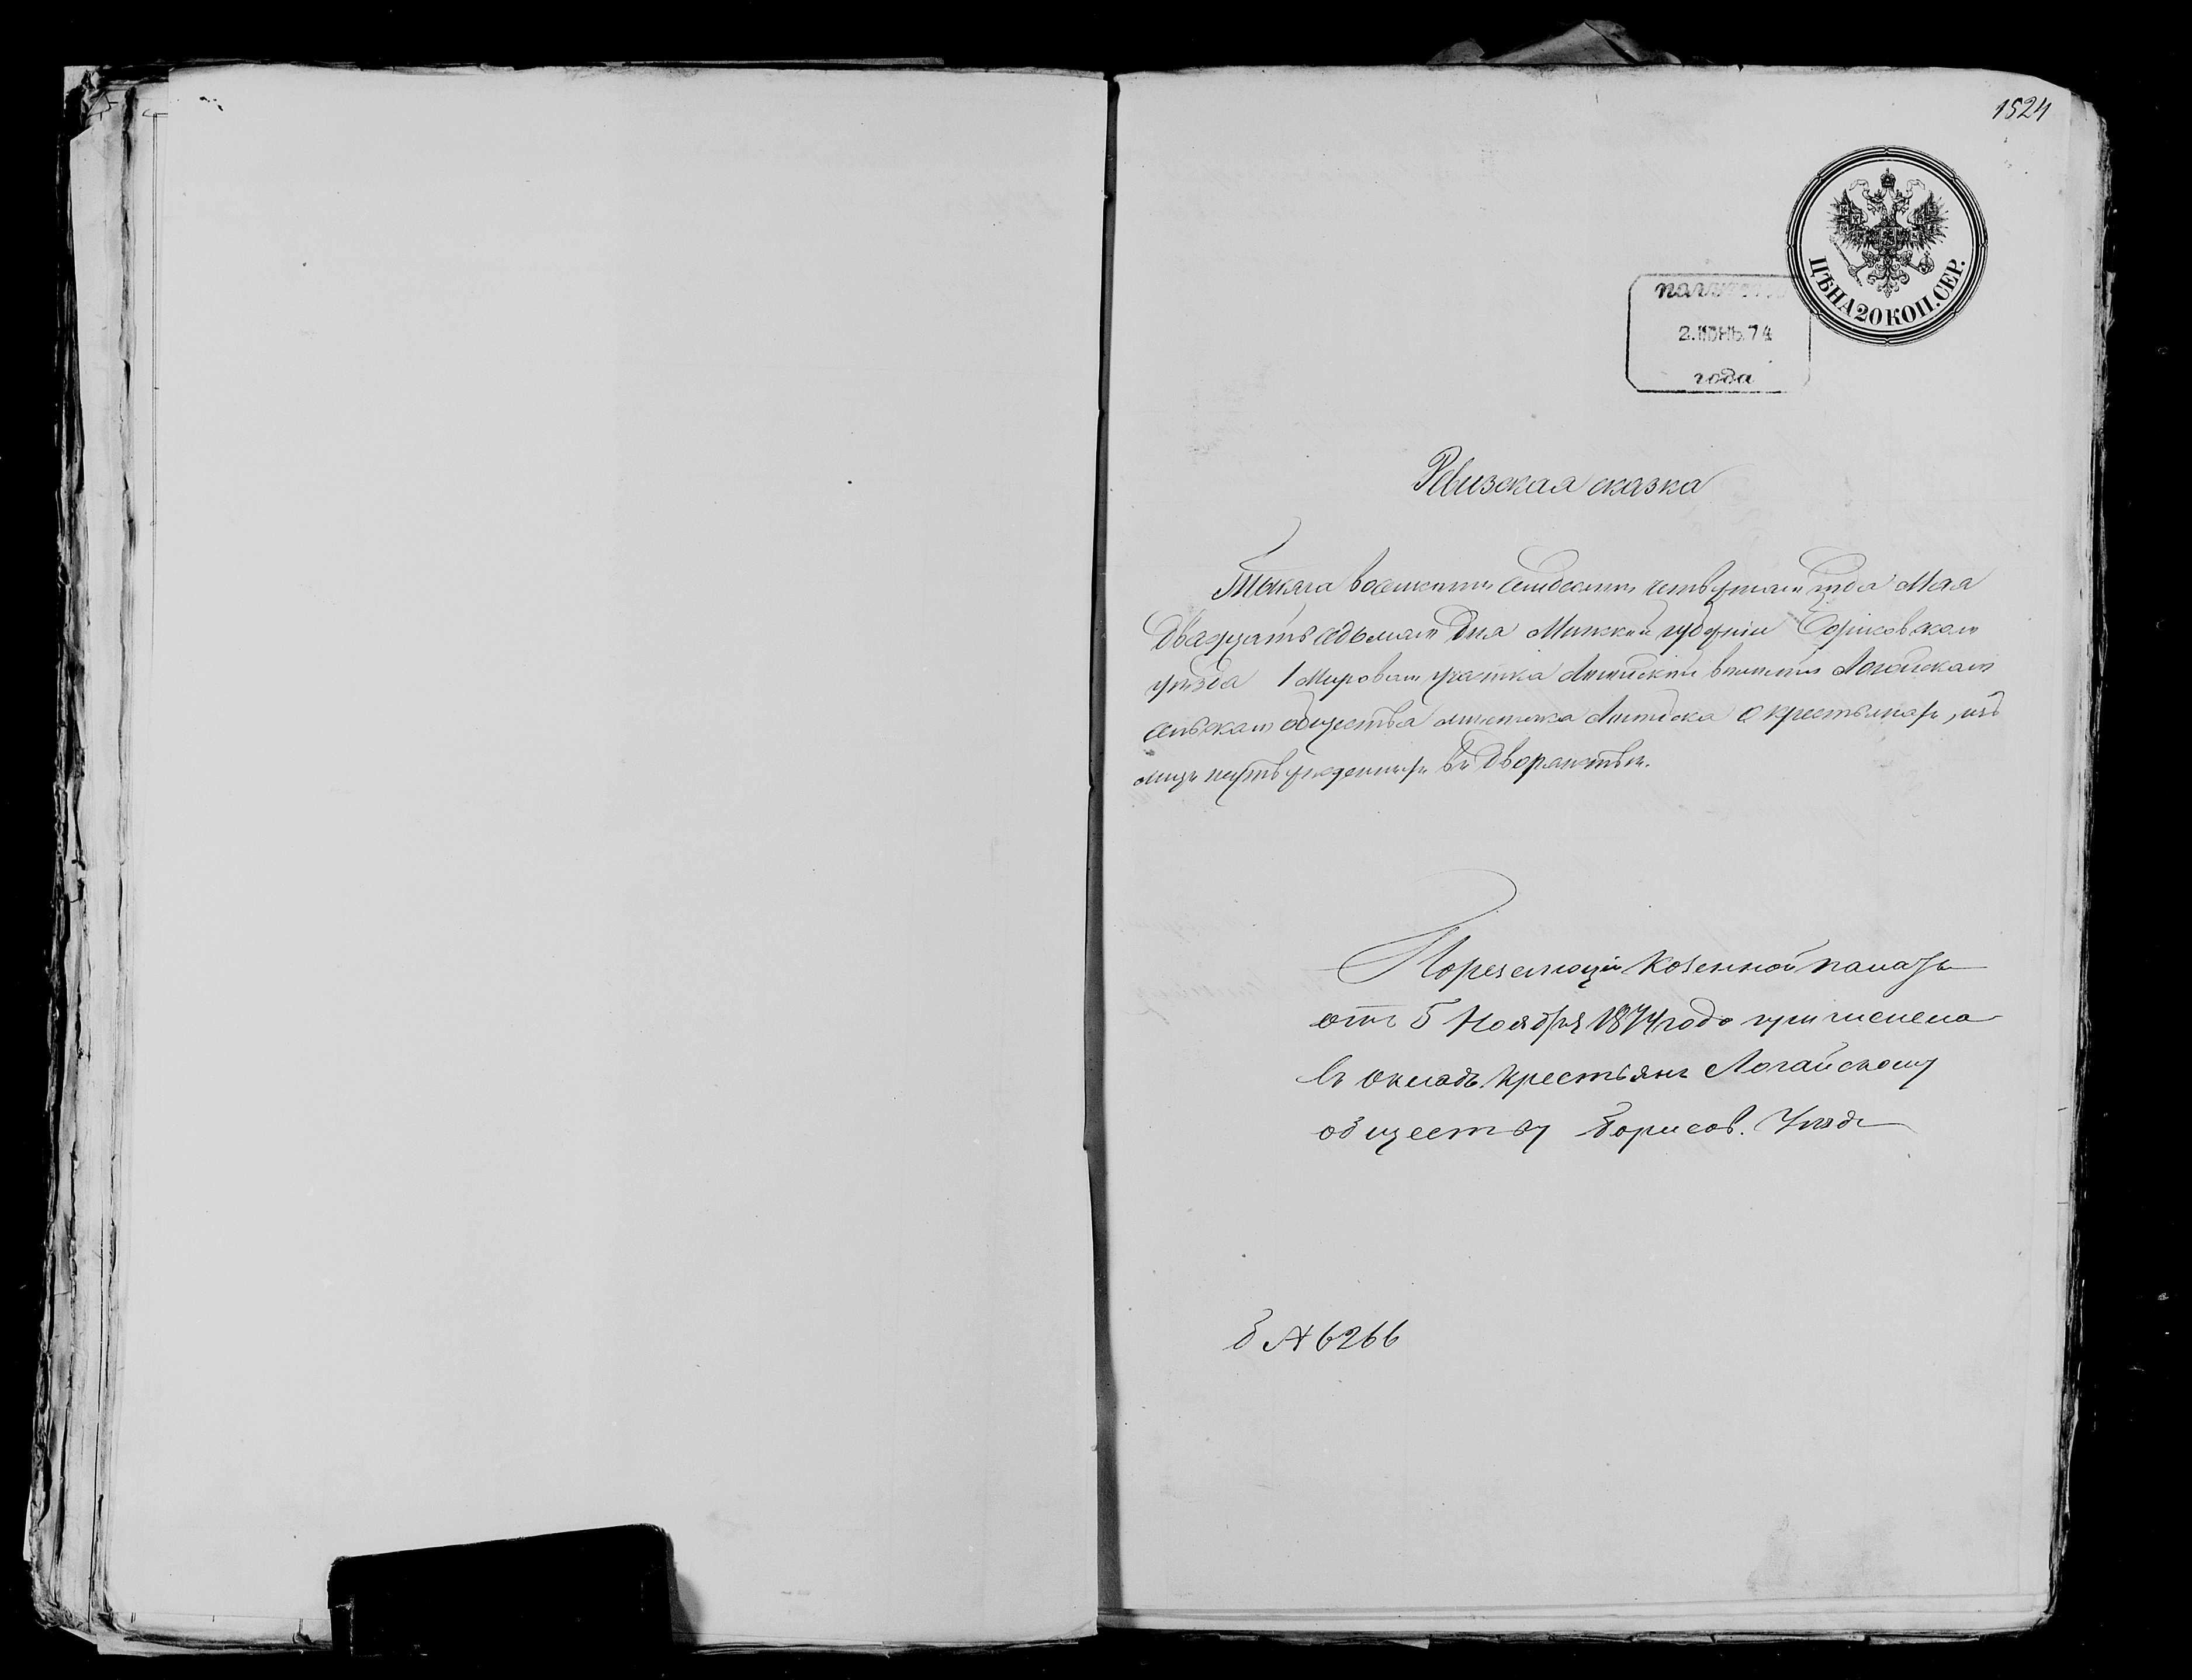 1524
ЦѢНА 20 КОП. СЕР.
получено
2.ІЮНЬ.74
года
Ревизская сказка
Тысяча восемьсотъ семьдесятъ четвертаго года Мая
двадцать седьмаго дня Минской губерніи Борисовскаго
уѣзда 1 Мироваго участка волости Логойскаго
сельскаго общества местечка о крестьянахъ, изъ
лицъ неутвержденныхъ въ дворянствѣ.
По резолюціи Козенной палаты
отъ 5 Ноября 1874 года причислена
въ окладъ крестьянъ Логайскому
обществу Борисов. Уѣзда
№ 6266